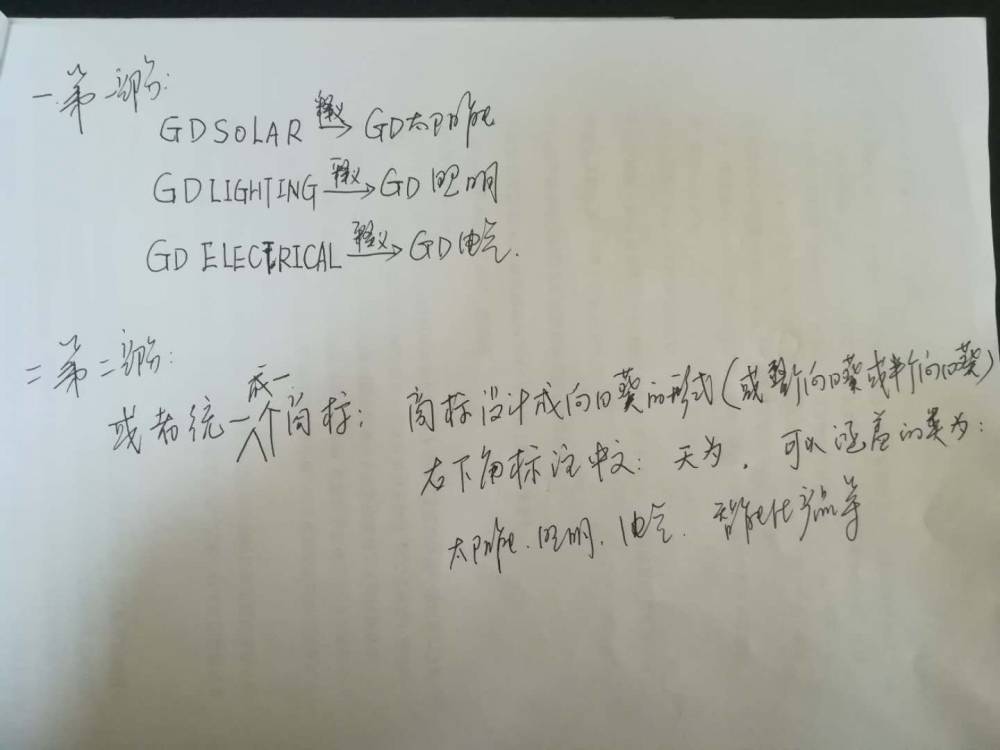 一.第一部分:
GD SOLAR 释义→ GD太阳能
GD LIGHTING 释义→ GD 照明
GD ELECTRICAL 释义→ GD 电气.
二 第二部分:
或者统一成一个商标: 商标设计成向日葵的形式(或整个向日葵或半个向日葵)
右下角标注中文: 天为, 可以涵盖的类为:
太阳能、照明、电气、智能化产品等